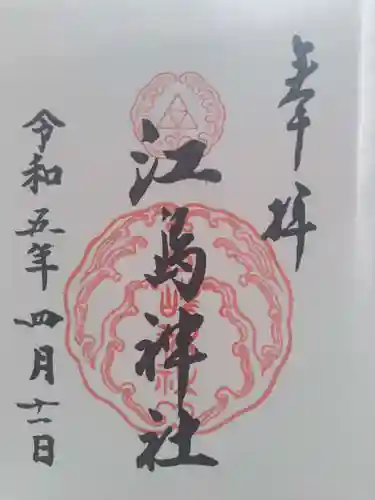 奉拝
江島神社
令和五年四月十一日